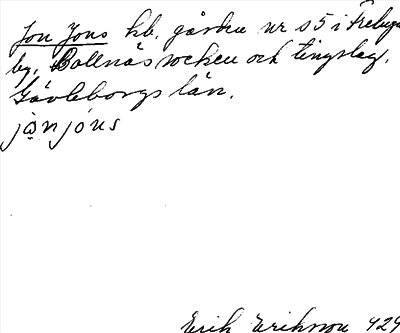 Jon Jons kb. gården nr 5 i Freluga
by, Bollnäs socken och tingslag,
Gävleborgs län.
jo̤n jóns
Erik Eriksson 424